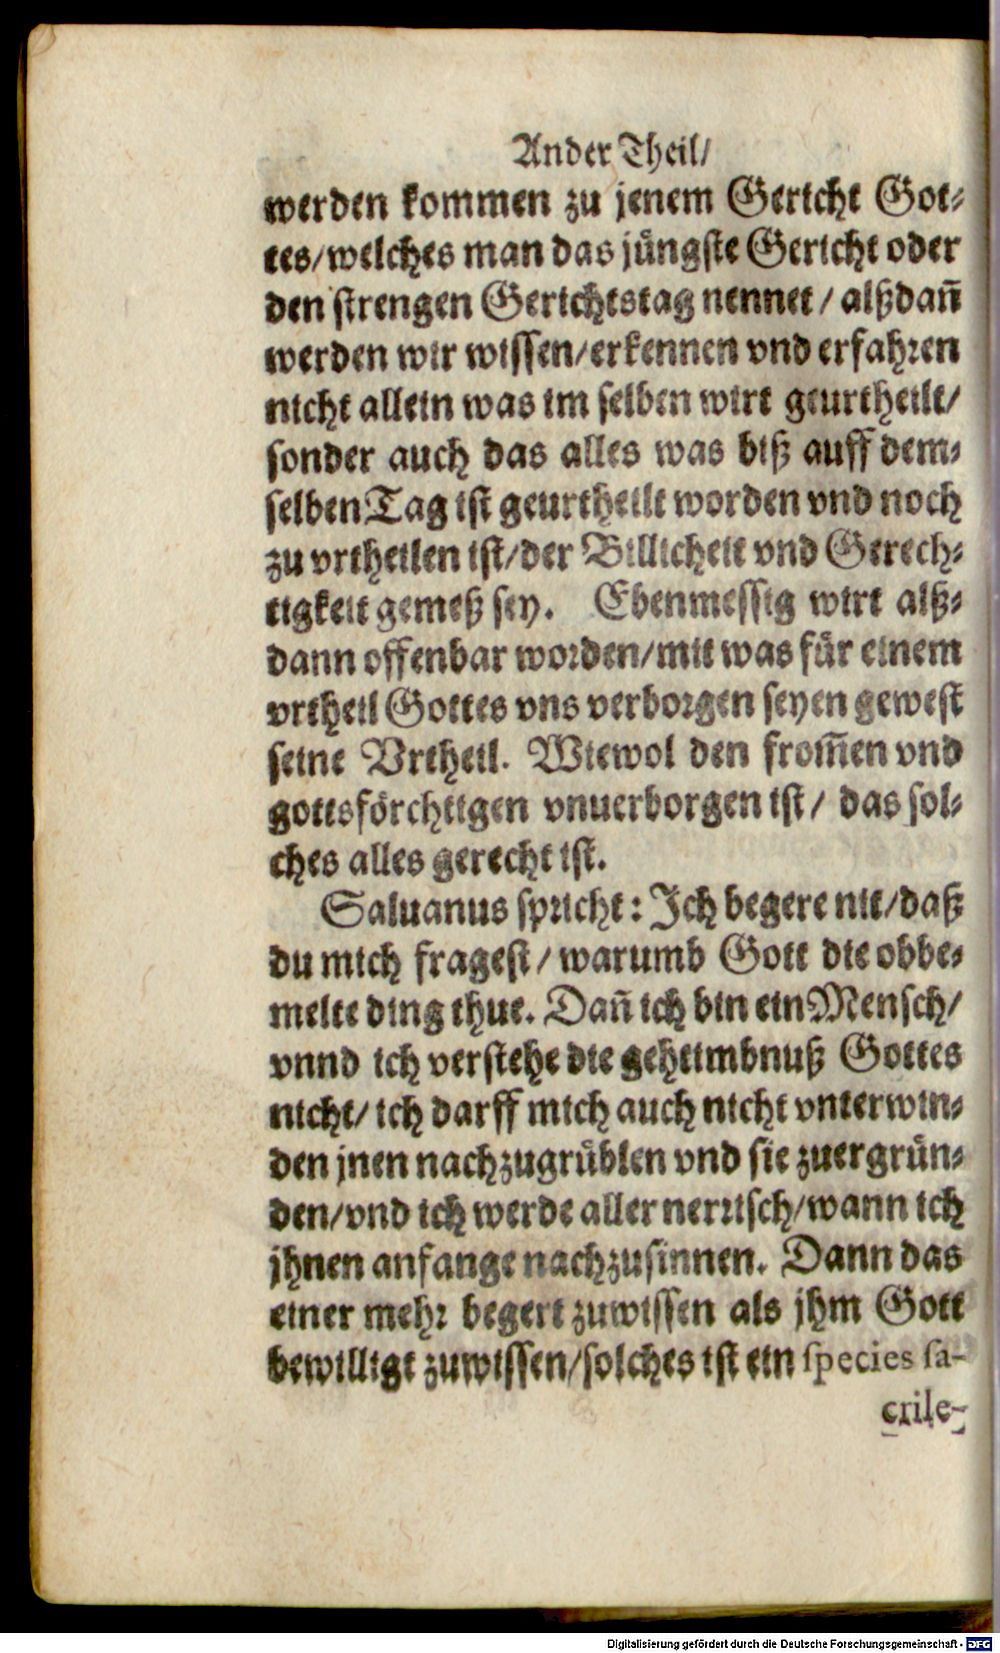 Ander Theil/
werden kommen zu jenem Gericht Got-
tes/welches man das jüngste Gericht oder
den strengen Gerichtstag nennet / alßdañ
werden wir wissen/erkennen vnd erfahren
nicht allein was im selben wirt geurtheilt/
sonder auch das alles was biß auff dem-
selben Tag ist geurtheilt worden vnd noch
zu vrtheilen ist/der Billicheit vnd Gerech-
tigkeit gemeß sey. Ebenmessig wirt alß-
dann offenbar worden/mit was für einem
vrtheil Gottes vns verborgen seyen gewest
seine Vrtheil. Wiewol den from̃en vnd
gottsförchtigen vnuerborgen ist/ das sol-
ches alles gerecht ist.
Saluanus spricht: Ich begere nit/daß
du mich fragest / warumb Gott die obbe-
melte ding thue. Dañ ich bin ein Mensch/
vnnd ich verstehe die geheimbnuß Gottes
nicht/ ich darff mich auch nicht vnterwin-
den jnen nachzugrüblen vnd sie zuergrün-
den/vnd ich werde aller nerrisch/wann ich
jhnen anfange nachzusinnen. Dann das
einer mehr begert zuwissen als jhm Gott
bewilligt zuwissen/solches ist ein species sa-
crile-
Digitalisierung gefördert durch die Deutsche Forschungsgemeinschaft - DFG